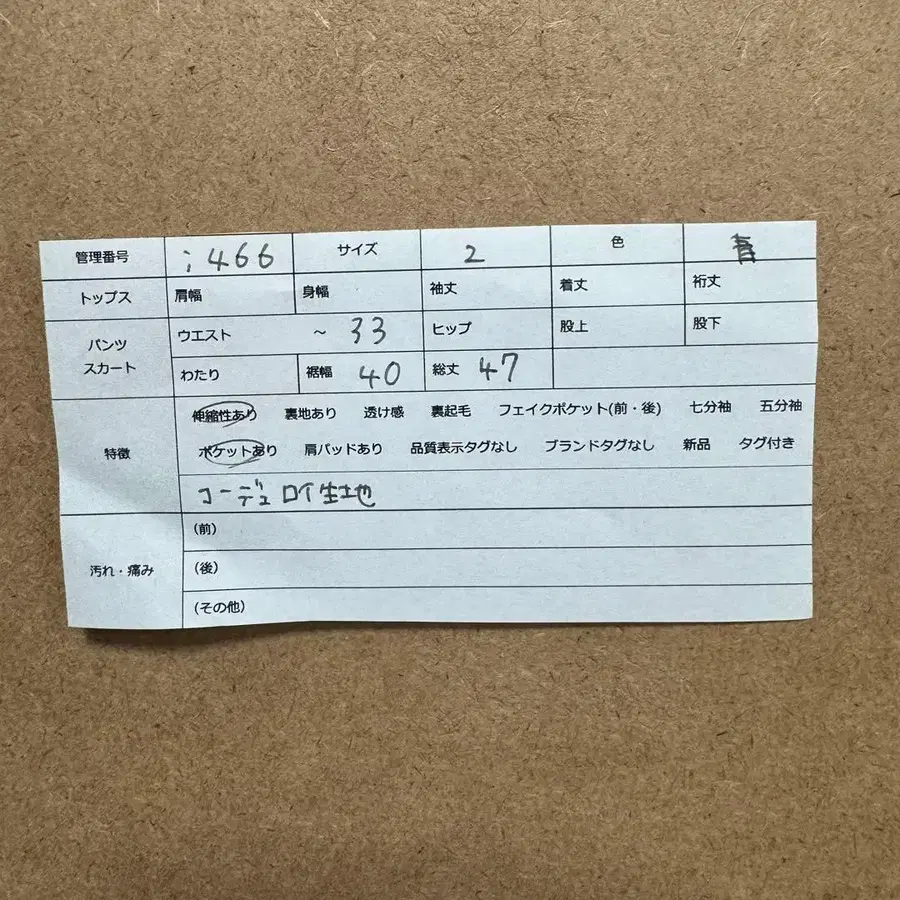 管理番号 i466 サイズ 2 色 青
トップス 肩幅 身幅 袖丈 着丈 裄丈
パンツ スカート ウエスト ~ 33 ヒップ 股上 股下
わたり 裾幅 40 総丈 47
特徴 伸縮性あり 裏地あり 透け感 裏起毛 フェイクポケット(前・後) 七分袖 五分袖
ポケットあり 肩パッドあり 品質表示タグなし ブランドタグなし 新品 タグ付き
コーデュロイ生地
汚れ・痛み (前)
(後)
(その他)